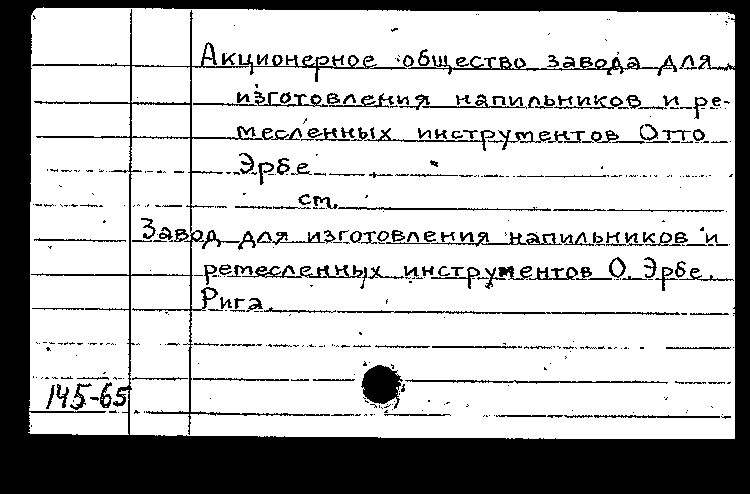 Акционерное общество завода для
изготовления напильников и ре-
месленных инструментов Отто
Эрбе
см.
Завод для изготовления напильников и
ремесленных инструментов О. Эрбе.
Рига.
145-65